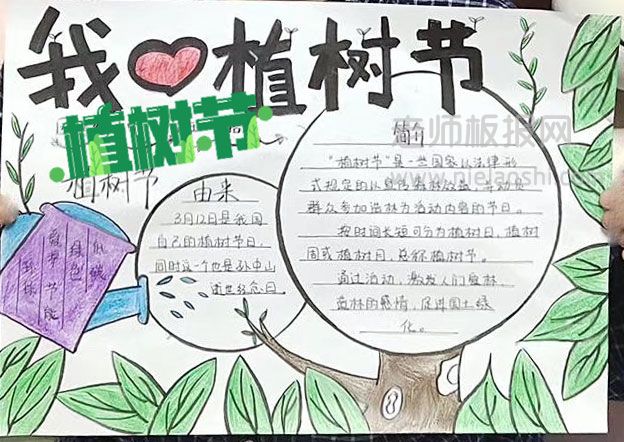 我植树节
植树节
植树节
由来
3月12日是我国
自己的植树节日,
同时这一个也是孙中山
逝世纪念日
简介
老师板报网
www.nielaoshi
"植树节"是一些国家以法律形
式规定的以宣传森林效益
群众参加造林为活动内容的节日。
按时间长短可分为植树日,植树
周或植树月,总称植树节。
通过活动,激发人们爱林、
造林的感情,促进国土绿
化。
低碳
绿色
节能
环保